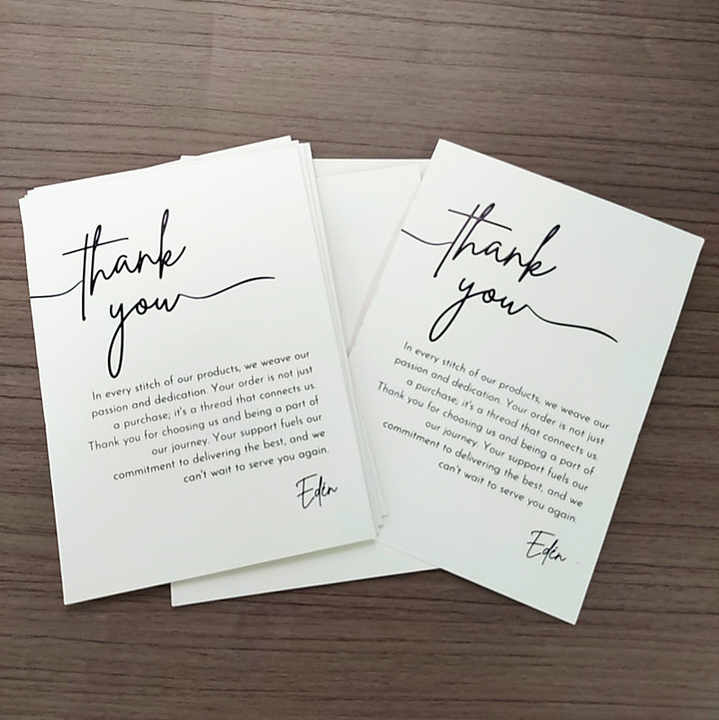 thank
you
In every stitch of our products, we weave our
passion and dedication. Your order is not just
a purchase; it's a thread that connects us.
Thank you for choosing us and being a part of
our journey. Your support fuels our
commitment to delivering the best, and we
can't wait to serve you again.
Edén
thank
you
In every stitch of our products, we weave our
passion and dedication. Your order is not just
a purchase; it's a thread that connects us.
Thank you for choosing us and being a part of
our journey. Your support fuels our
commitment to delivering the best, and we
can't wait to serve you again.
Edén